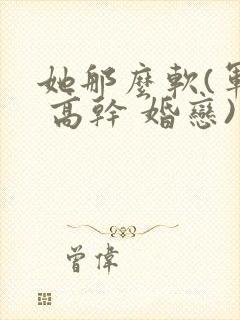 她那麼軟(軍
高幹 婚戀)
曾偉